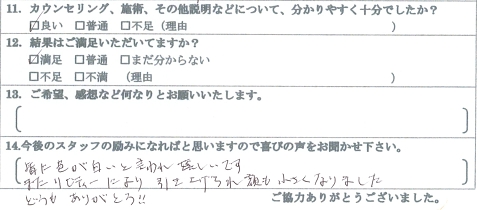 11. カウンセリング、施術、その他説明などについて、分かりやすく十分でしたか？
☑良い　□普通　□不足（理由　　　　　　）
12. 結果はご満足いただいてますか？
☑満足　□普通　□まだ分からない
□不足　□不満　（理由　　　　　　）
13. ご希望、感想など何なりとお願いいたします。
14.今後のスタッフの励みになればと思いますので喜びの声をお聞かせ下さい。
皆に色が白いと言われ嬉しいです
またリひィーにより 引き上げられ 顔も小さくなりました
どうも ありがとう!!
ご協力ありがとうございました。